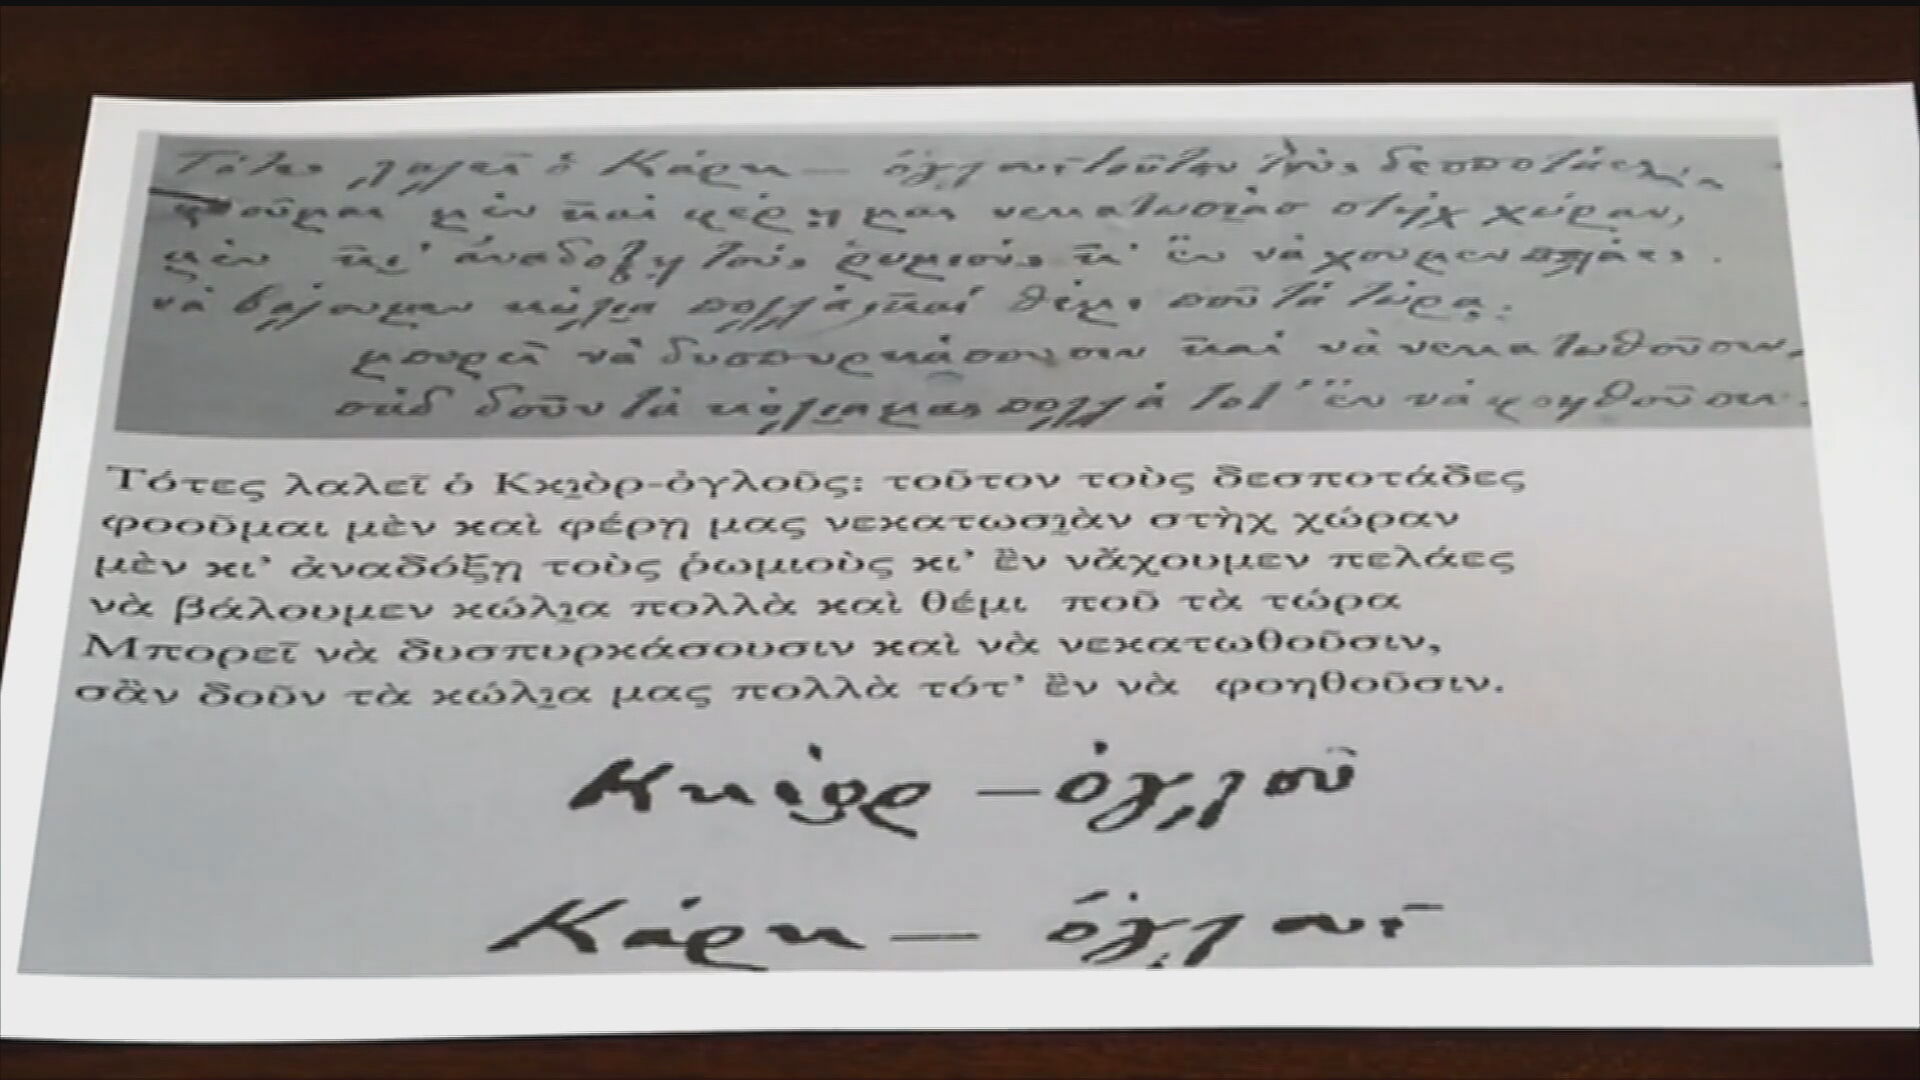 Τότες λαλεῖ ὁ Κάρη — ὀγλοῦ τοῦτον τοὺς δεσποτάες
φοοῦμαι μὲν καὶ φέρη μας νεκατωσιὰσ στὴχ χώραν,
μὲν κι' ἀναδόξη τοὺς ῥωμιοὺς κι' ἒν νὰ χουμεν πελάες.
νὰ βάλουμεν κώλια πολλὰ καὶ θέμι ποῦ τὰ τώρα.
μπορεῖ νὰ δυσπυρκάσουσιν καὶ νὰ νεκατωθοῦσιν,
σὰδ δοῦν τὰ κώλια μας πολλὰ τότ' ἒν νὰ φοηθοῦσιν.
Τότες λαλεῖ ὁ Κκιὸρ-ὀγλοῦς: τοῦτον τοὺς δεσποτάδες
φοοῦμαι μὲν καὶ φέρη μας νεκατωσιὰν στὴχ χώραν
μὲν κι' ἀναδόξη τοὺς ῥωμιοὺς κι' ἒν νἄχουμεν πελάες
νὰ βάλουμεν κώλια πολλὰ καὶ θέμι ποῦ τὰ τώρα
Μπορεῖ νὰ δυσπυρκάσουσιν καὶ νὰ νεκατωθοῦσιν,
σἂν δοῦν τὰ κώλια μας πολλὰ τότ' ἒν νὰ φοηθοῦσιν.
Κκιὸρ – ὀγλοῦ
Κάρη — ὀγλοῦ